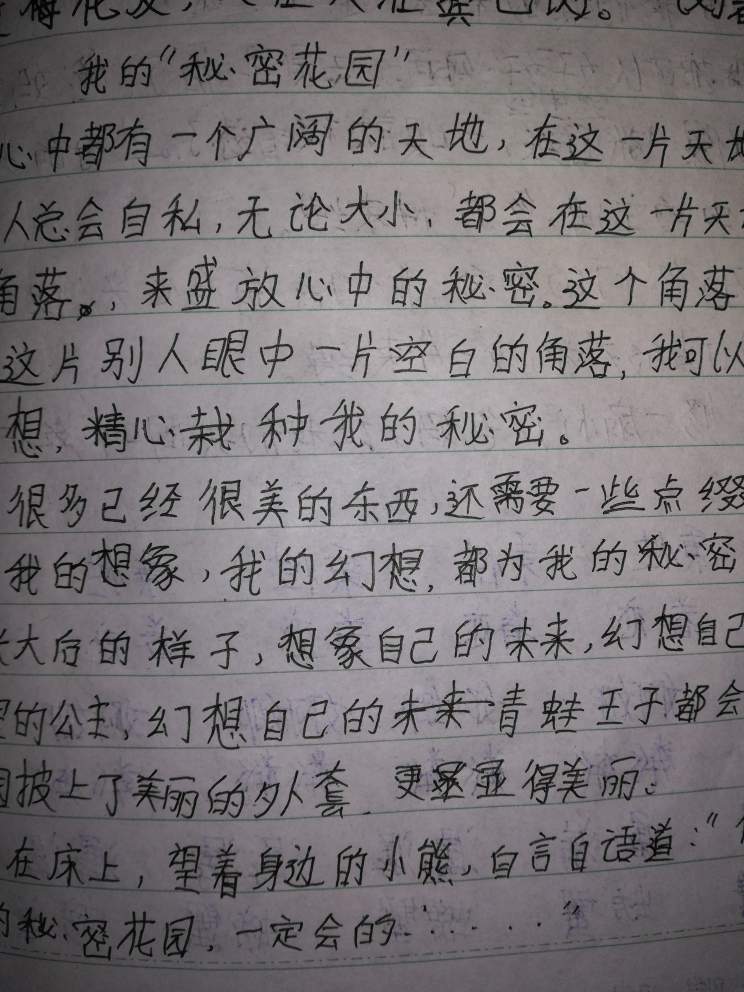 我的“秘密花园”
心中都有一个广阔的天地，在这一片天地
人总会自私，无论大小，都会在这一片天
角落，来盛放心中的秘密。这个角落
这片别人眼中一片空白的角落，我可以
想，精心栽种我的秘密。
很多已经很美的东西，还需要一些点缀
我的想象，我的幻想，都为我的秘密
长大后的样子，想象自己的未来，幻想自己
的公主，幻想自己的青蛙王子都会
披上了美丽的外套，更显得美丽。
在床上，望着身边的小熊，自言自语道：“
的秘密花园，一定会的······”